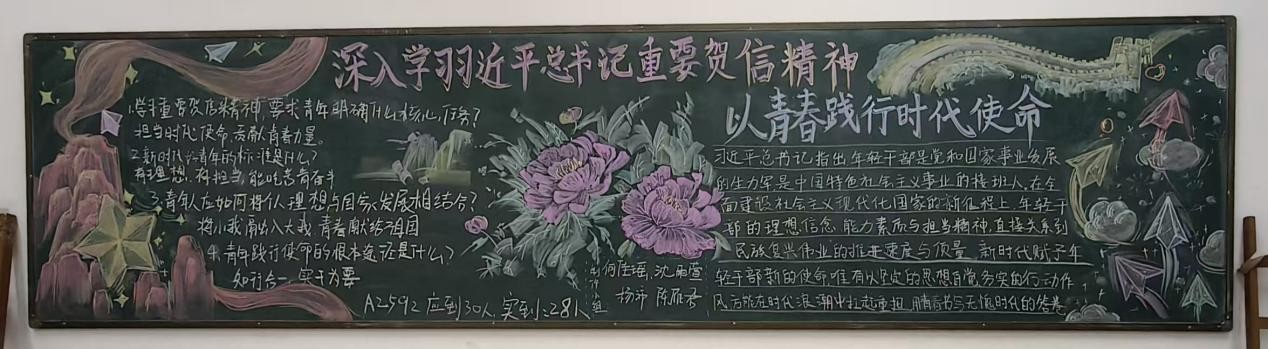 深入学习习近平总书记重要贺信精神
1.学习重要贺信精神,要求青年明确什么核心任务?
担当时代使命,贡献青春力量。
2.新时代好青年的标准是什么?
有理想,有担当,能吃苦,肯奋斗
3.青年人应如何将个人理想与国家发展相结合?
将小我融入大我,青春献给祖国
4.青年践行使命的根本途径是什么?
知行合一,实干为要
A2592 应到:30人,实到:28人
制作小组
何佳瑶 沈
杨 陈
以青春践行时代使命
习近平总书记指出,年轻干部是党和国家事业发展
的生力军,是中国特色社会主义事业的接班人,在全
面建设社会主义现代化国家的新征程上,年轻干
部的理想信念,能力素质与担当精神,直接关系到
民族复兴伟业的推进速度与质量,新时代赋予年
轻干部新的使命,唯有以坚定的思想自觉,务实的行动作
风,方能在时代浪潮中扛起重担,书写无愧时代的答卷